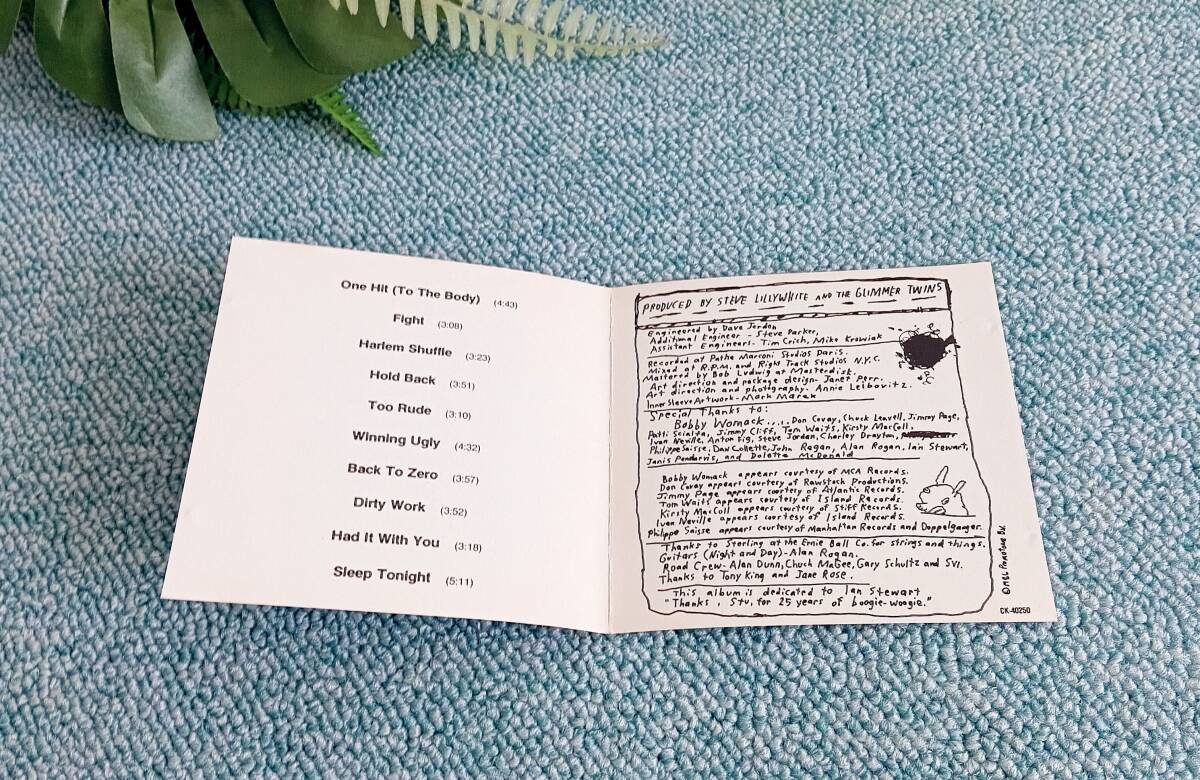 One Hit (To The Body) (4:43)
Fight (3:08)
Harlem Shuffle (3:23)
Hold Back (3:51)
Too Rude (3:10)
Winning Ugly (4:32)
Back To Zero (3:57)
Dirty Work (3:52)
Had It With You (3:18)
Sleep Tonight (5:11)
PRODUCED BY STEVE LILLYWHITE AND THE GLIMMER TWINS
Engineered by Dave Jerden
Additional Engineer - Steve Parker,
Assistant Engineers - Tim Crich, Mike Krowiak
Recorded at Pathe Marconi Studios Paris.
Mixed at R.P.M. and Right Track Studios N.Y.C.
Mastered by Bob Ludwig at Masterdisk.
Art direction and package design - Janet Perr.
Art direction and photography - Annie Leibovitz.
Inner Sleeve Artwork - Mark Marek
Special Thanks to:
Bobby Womack ..... Don Covay, Chuck Leavell, Jimmy Page,
Patti Scialfa, Jimmy Cliff, Tom Waits, Kirsty MacColl,
Ivan Neville, Anton Fig, Steve Jordan, Charley Drayton,
Philippe Saisse, Dan Collette, John Regan, Alan Rogan, Ian Stewart,
Janis Pendarvis, and Dolette McDonald
Bobby Womack appears courtesy of MCA Records.
Don Covay appears courtesy of Rawstock Productions.
Jimmy Page appears courtesy of Atlantic Records.
Tom Waits appears courtesy of Island Records.
Kirsty MacColl appears courtesy of Stiff Records.
Ivan Neville appears courtesy of Island Records.
Philippe Saisse appears courtesy of Manhattan Records and Doppelganger.
Thanks to Sterling at the Ernie Ball Co. for strings and things.
Guitars (Night and Day) - Alan Rogan.
Road Crew - Alan Dunn, Chuck MaGee, Gary Schultz and Svi.
Thanks to Tony King and Jane Rose.
This album is dedicated to Ian Stewart
"Thanks, Stu, for 25 years of boogie-woogie."
CK-40250